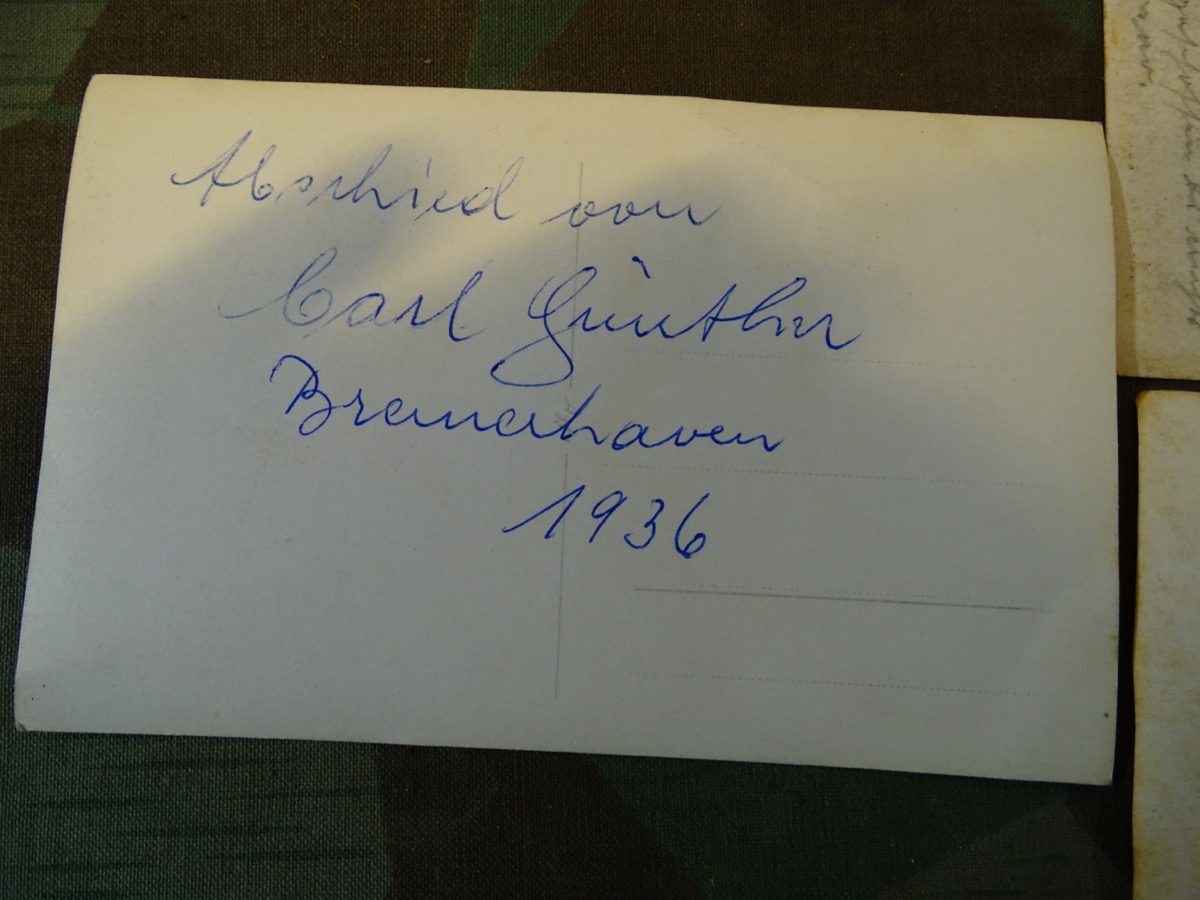 Abschied von
Carl Günther
Bremerhaven
1936